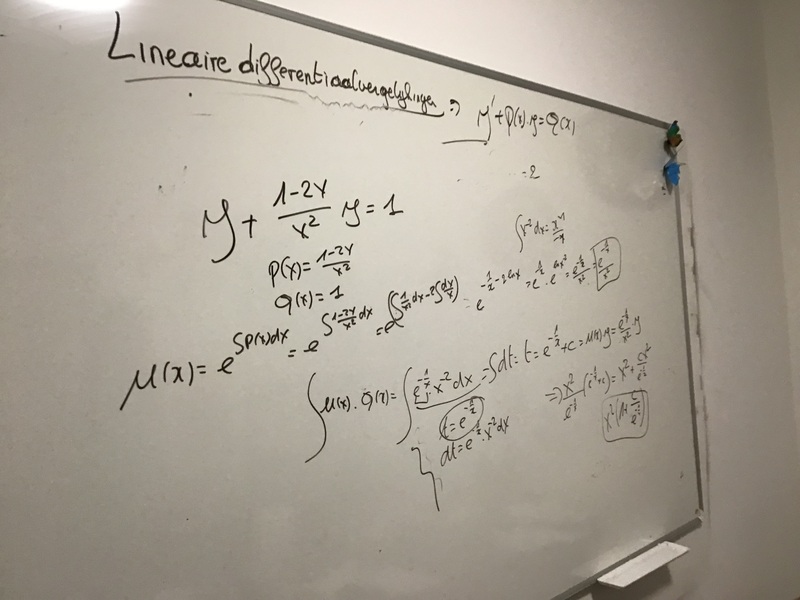 Lineaire differentiaalvergelijkingen => y' + P(x).y = Q(x)
= 2
y + (1-2x)/x² y = 1
P(x) = (1-2x)/x²
Q(x) = 1
∫x⁻² dx = x⁻¹/-1
μ(x) = e^∫P(x)dx = e^∫(1-2x)/x² dx = e^(∫1/x² dx - 2∫dx/x) = e^(-1/x - 2lnx) = e^(-1/x) . e^(lnx²) = e^(-1/x)/x² = e^(-1/x)/x²
∫μ(x).Q(x) = ∫e^(-1/x) . x⁻² dx = ∫dt = t = e^(-1/x) + c = μ(x).y = e^(-1/x)/x² . y
t = e^(-1/x)
dt = e^(-1/x) . x⁻² dx
=> x²/e^(-1/x) (e^(-1/x) + c) = x² + cx²/e^(-1/x)
x²(1 + c/e^(-1/x))